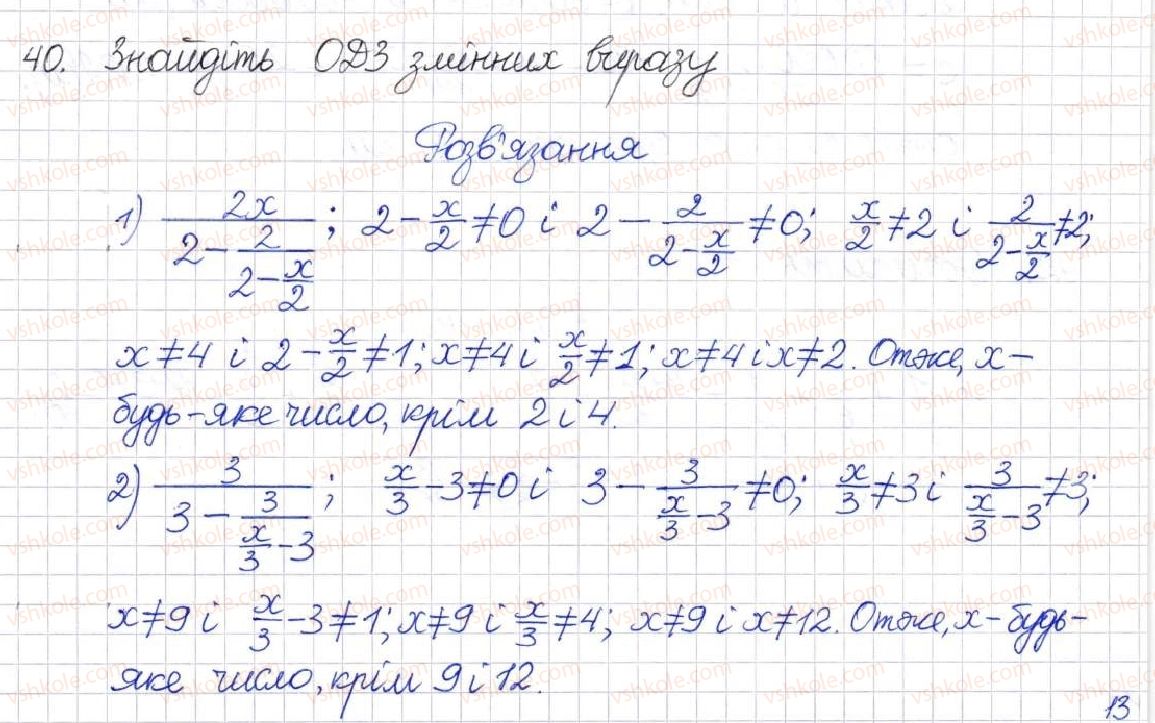 40. Знайдіть ОДЗ змінних виразу
Розв'язання
1) 2x/(2 - 2/(2 - x/2)); 2 - x/2 ≠ 0 і 2 - 2/(2 - x/2) ≠ 0; x/2 ≠ 2 і 2/(2 - x/2) ≠ 2;
x ≠ 4 і 2 - x/2 ≠ 1; x ≠ 4 і x/2 ≠ 1; x ≠ 4 і x ≠ 2. Отже, x -
будь-яке число, крім 2 і 4.
2) 3/(3 - 3/(x/3 - 3)); x/3 - 3 ≠ 0 і 3 - 3/(x/3 - 3) ≠ 0; x/3 ≠ 3 і 3/(x/3 - 3) ≠ 3;
x ≠ 9 і x/3 - 3 ≠ 1; x ≠ 9 і x/3 ≠ 4; x ≠ 9 і x ≠ 12. Отже, x - будь-
яке число, крім 9 і 12.
13
vshkole.com